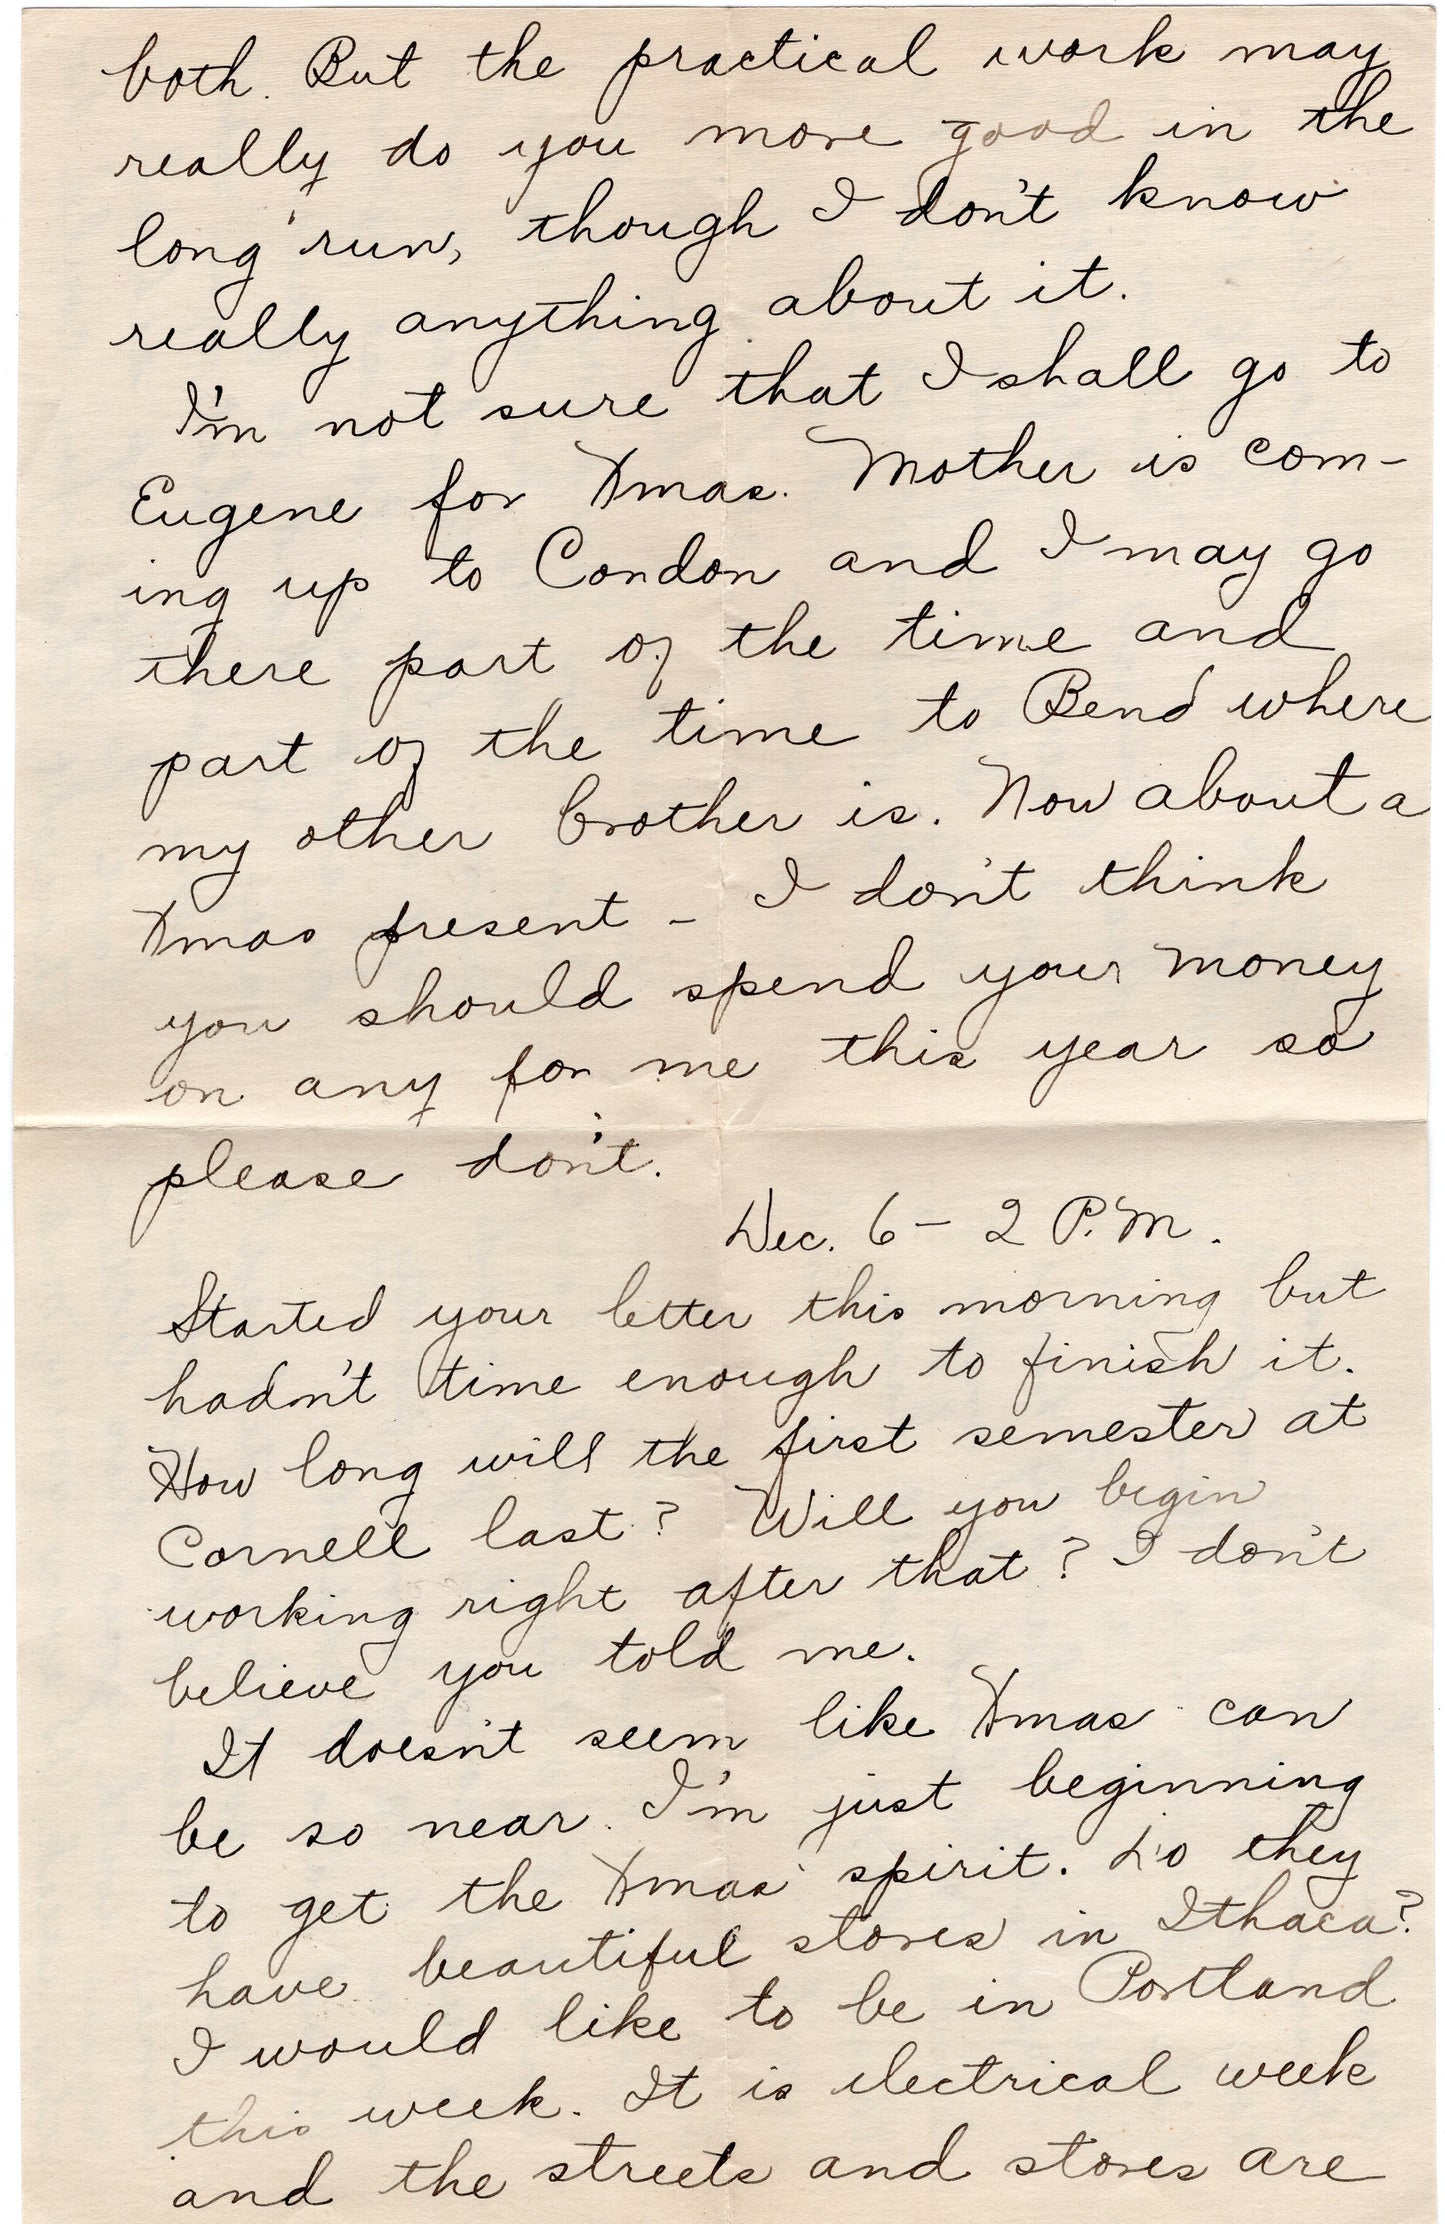 both. But the practical work may
really do you more good in the
long run, though I don't know
really anything about it.
I'm not sure that I shall go to
Eugene for Xmas. Mother is com-
ing up to Condon and I may go
there part of the time and
part of the time to Bend where
my other brother is. Now about a
Xmas present - I don't think
you should spend your money
on any for me this year so
please don't.
Dec. 6 - 2 P.M.
Started your letter this morning but
hadn't time enough to finish it.
How long will the first semester at
Cornell last? Will you begin
working right after that? I don't
believe you told me.
It doesn't seem like Xmas can
be so near. I'm just beginning
to get the Xmas spirit. Do they
have beautiful stores in Ithaca?
I would like to be in Portland
this week. It is electrical week
and the streets and stores are